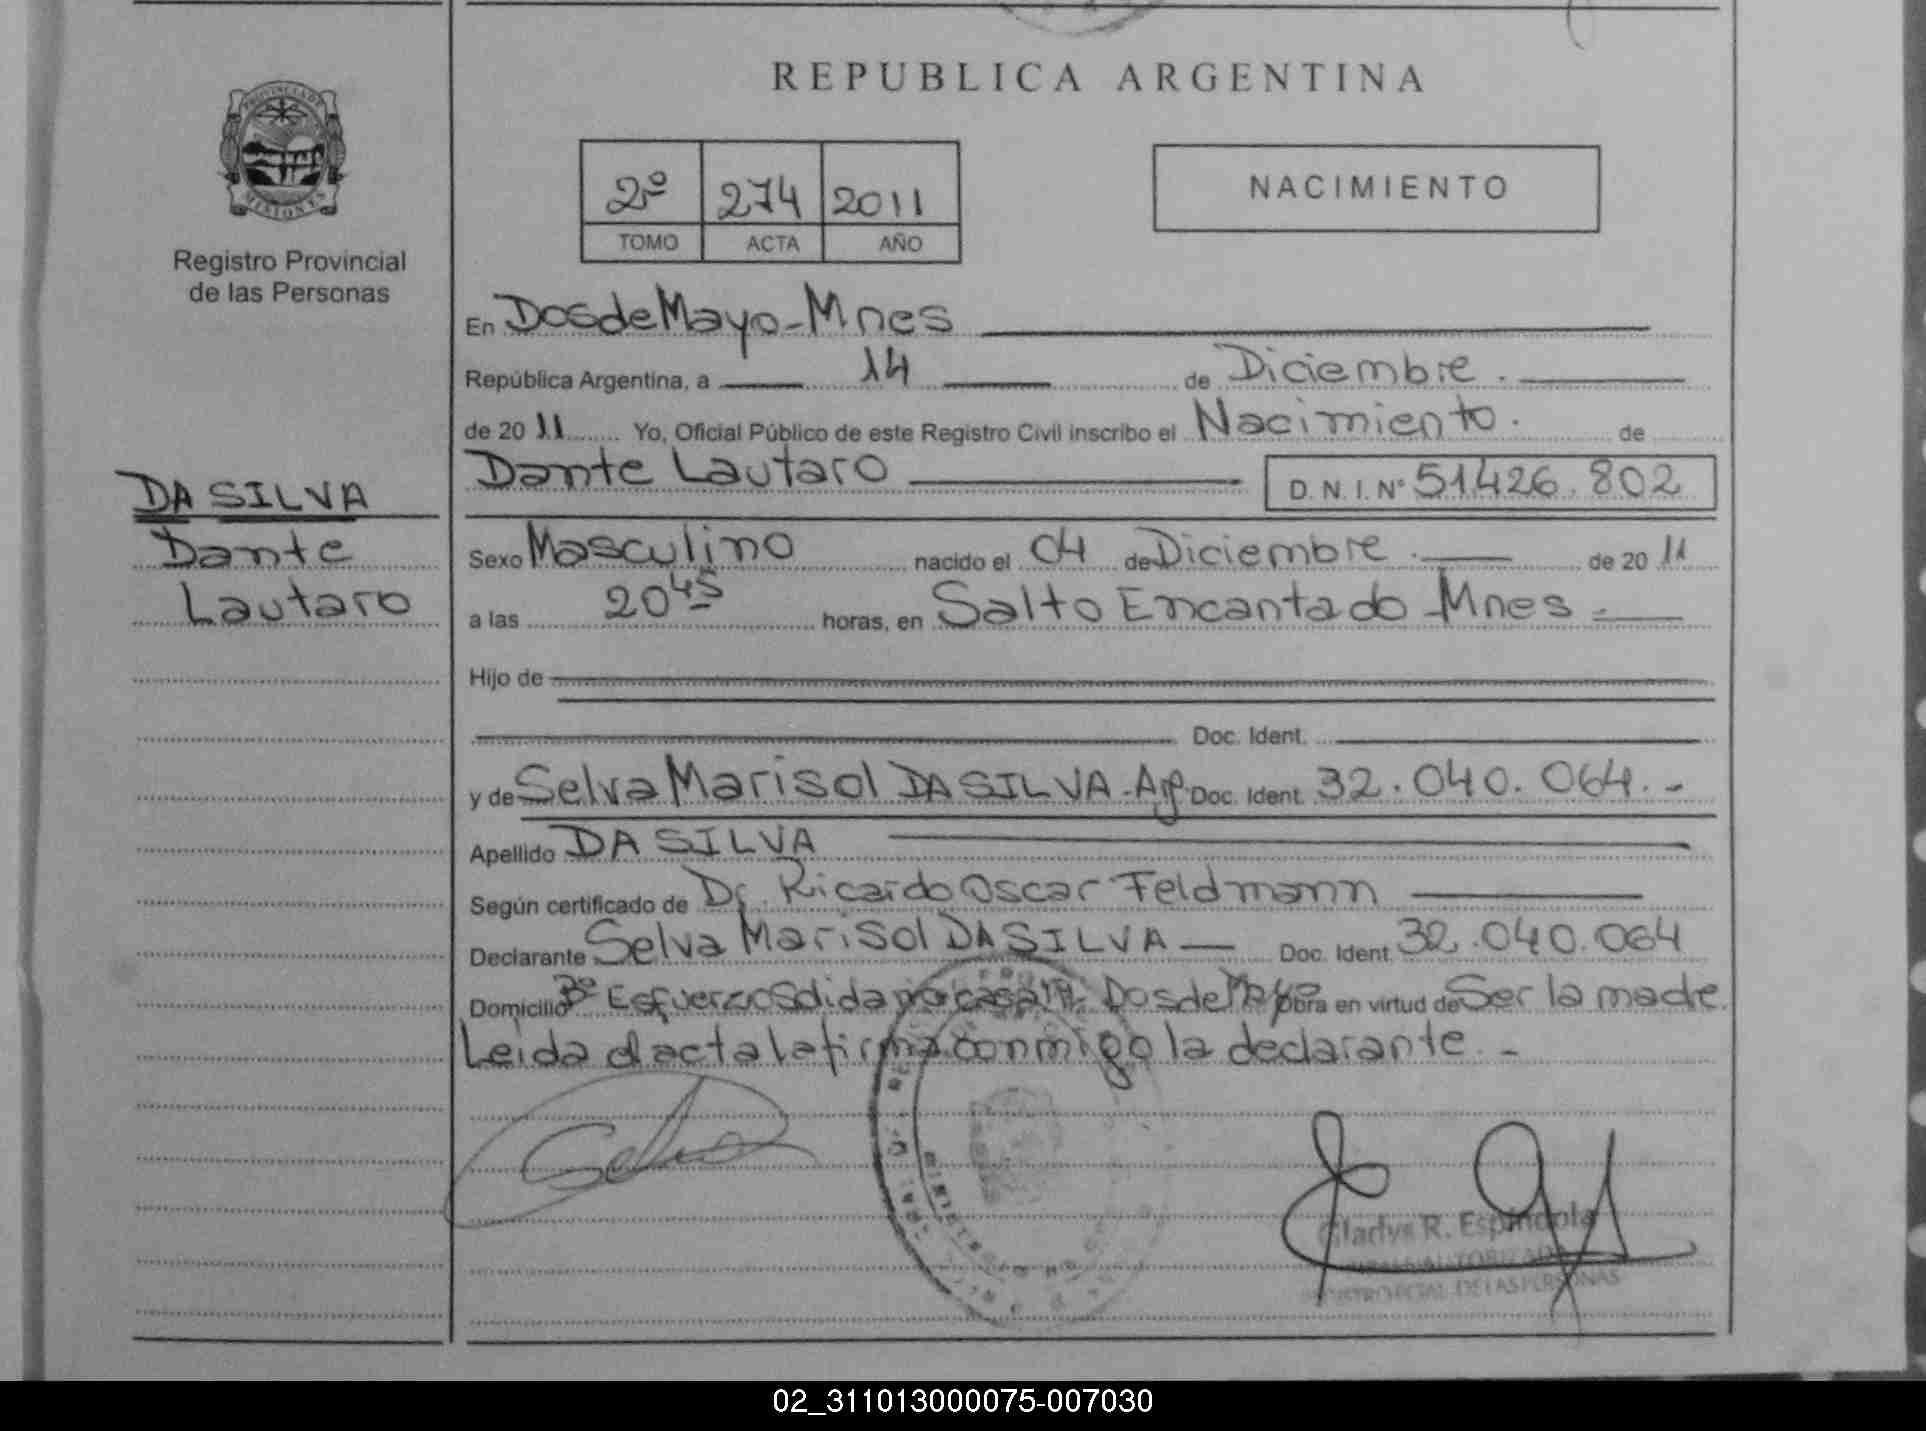 REPUBLICA ARGENTINA
PROVINCIA DE
MISIONES
Registro Provincial
de las Personas
2º 274 2011
TOMO ACTA AÑO
NACIMIENTO
En Dos de Mayo - Mnes
República Argentina, a 14 de Diciembre.
de 20 11 Yo, Oficial Público de este Registro Civil inscribo el Nacimiento. de
Dante Lautaro D. N. I. Nº 51.426.802
DA SILVA
Dante
Lautaro
Sexo Masculino nacido el 04 de Diciembre. de 20 11
a las 20 45 horas, en Salto Encantado Mnes -
Hijo de
Doc. Ident.
y de Selva Marisol DA SILVA - Arg Doc. Ident. 32.040.064.-
Apellido DA SILVA
Según certificado de Dr. Ricardo Oscar Feldmann
Declarante Selva Marisol DA SILVA — Doc. Ident. 32.040.064
Domicilio Bº Esfuerzo casa Dos de Mayo obra en virtud de Ser la madre
Leida el acta la firma conmigo la declarante. -
Gladys R. Espindola
FIRMA AUTORIZADA
REGISTRO PCIAL. DE LAS PERSONAS
02_311013000075-007030